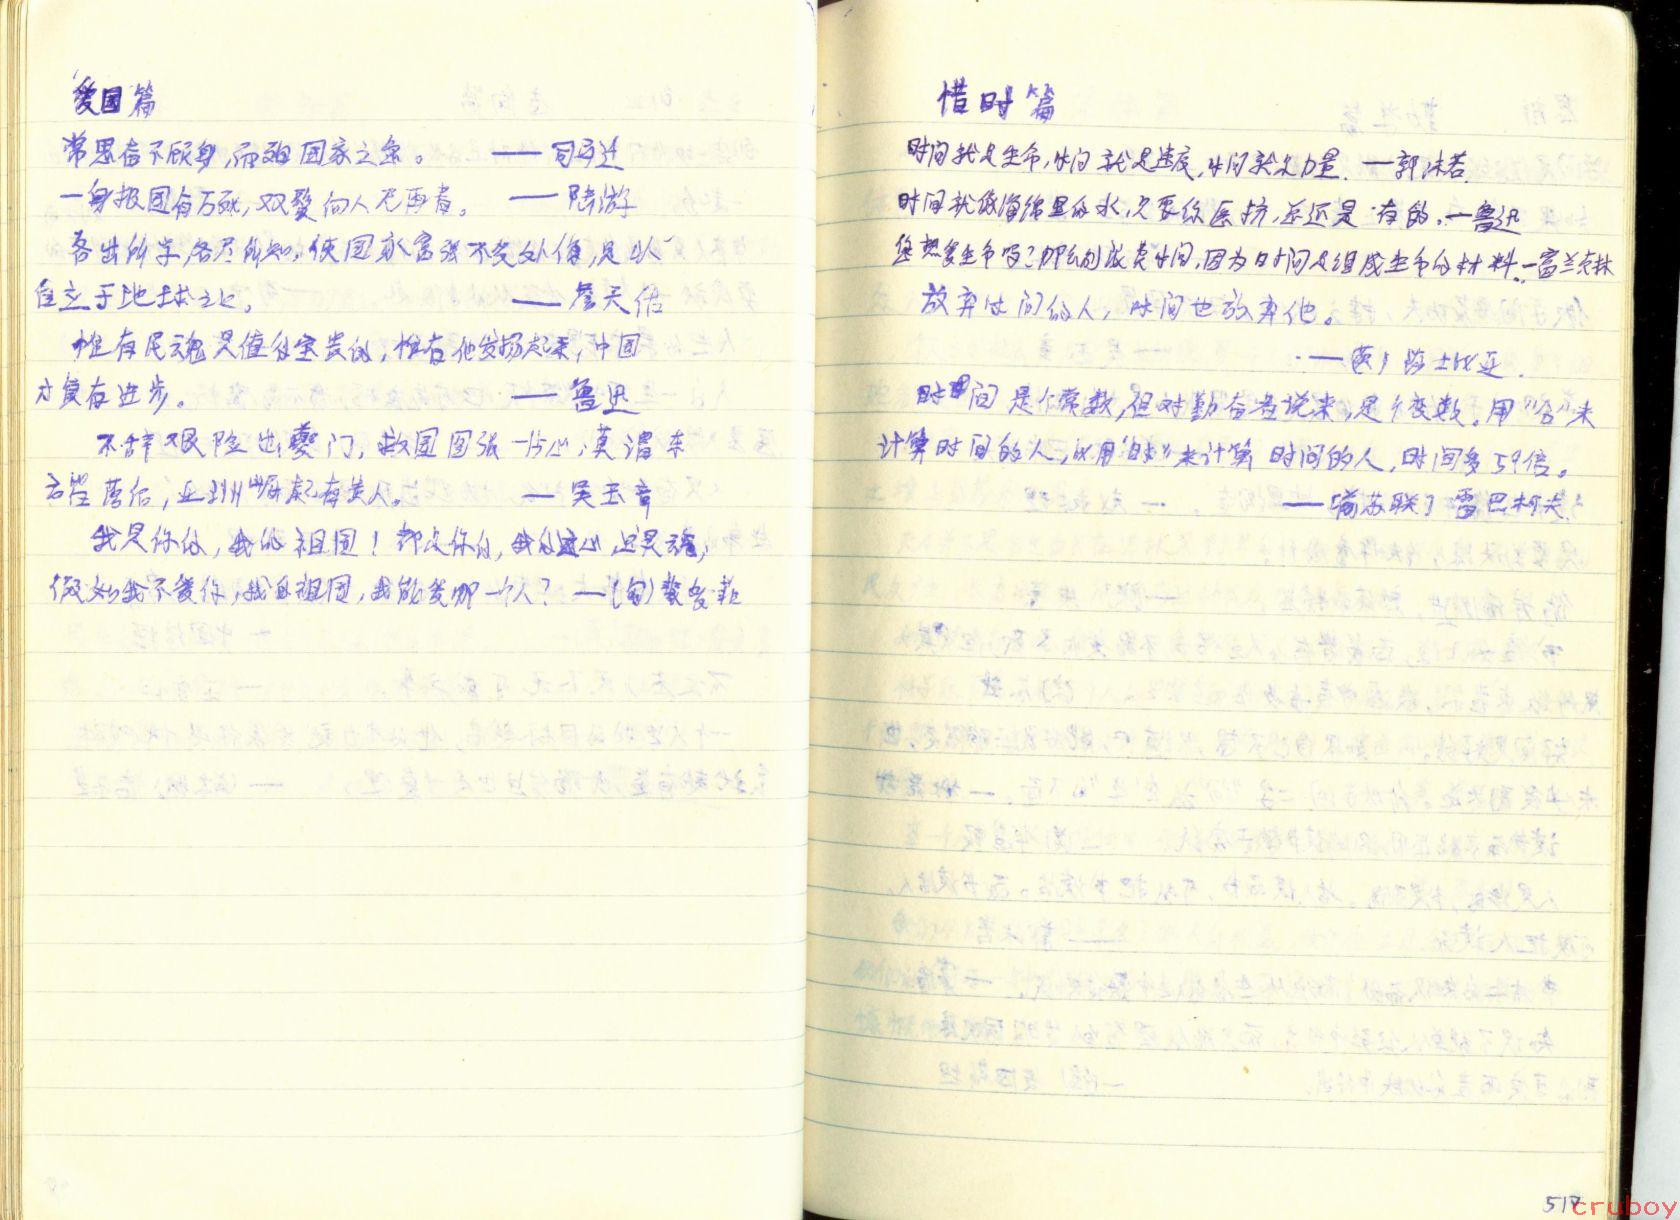 爱国篇
常思奋不顾身,而殉国家之急。 ——司马迁
一身报国有万死,双鬓向人无再青。 ——陆游
各出所学,各尽所知,使国家富强不受外侮,足以
自立于地球之上。 ——詹天佑
惟有民魂是值得宝贵的,惟有他发扬起来,中国
才真有进步。 ——鲁迅
不辞艰险出夔门,救国图强一片心;莫谓东
方皆落后,亚洲崛起有黄人。 ——吴玉章
我是你的,我的祖国!都是你的,我的这心、这灵魂;
假如我不爱你,我的祖国,我能爱哪一个人?——(匈)裴多菲
惜时篇
时间就是生命,时间就是速度,时间就是力量.——郭沫若.
时间就像海绵里的水,只要你愿挤,总还是有的.—鲁迅
您热爱生命吗?那么别浪费时间,因为时间是组成生命的材料.—富兰克林
放弃时间的人,时间也放弃他。
——(英)莎士比亚.
时间是个常数,但对勤奋者说来,是个变数。用“分”来
计算时间的人,比用“时”来计算时间的人,时间多59倍。
——(前苏联)雷巴柯夫
517
cruboy